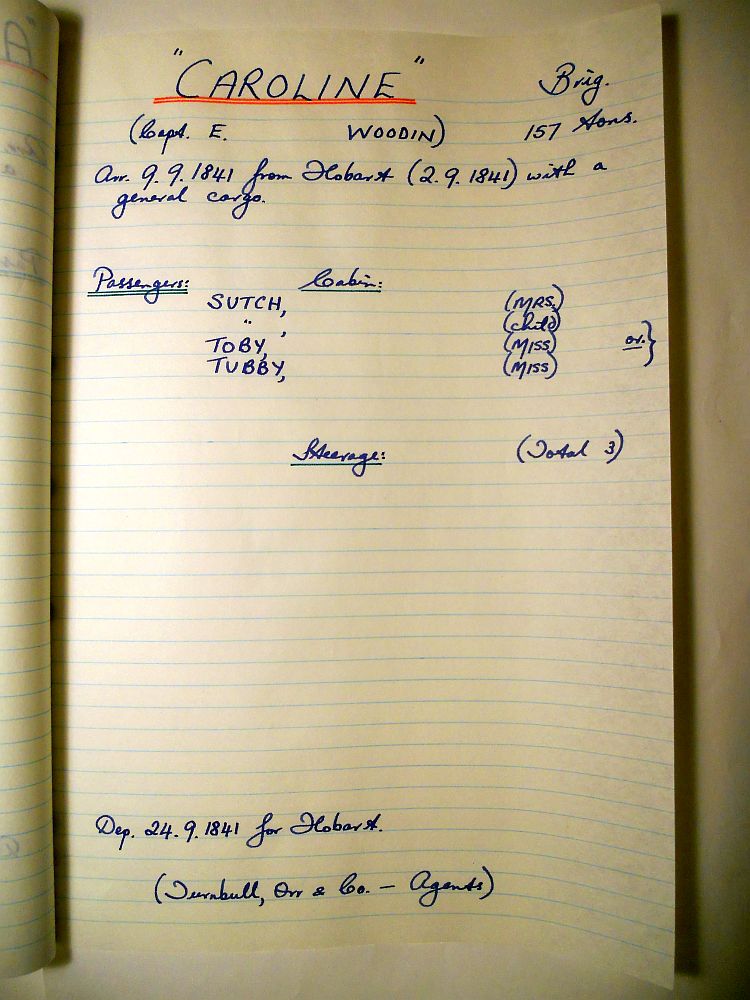 "CAROLINE" Brig.
(Capt. E. WOODIN) 157 tons.
Arr. 9.9.1841 from Hobart (2.9.1841) with a
general cargo.
Passengers: Cabin:
SUTCH, (MRS.)
" , (child)
TOBY, (MISS) or. }
TUBBY, (MISS)
Steerage: (Total 3)
Dep. 24.9.1841 for Hobart.
(Turnbull, Orr & Co. — Agents)